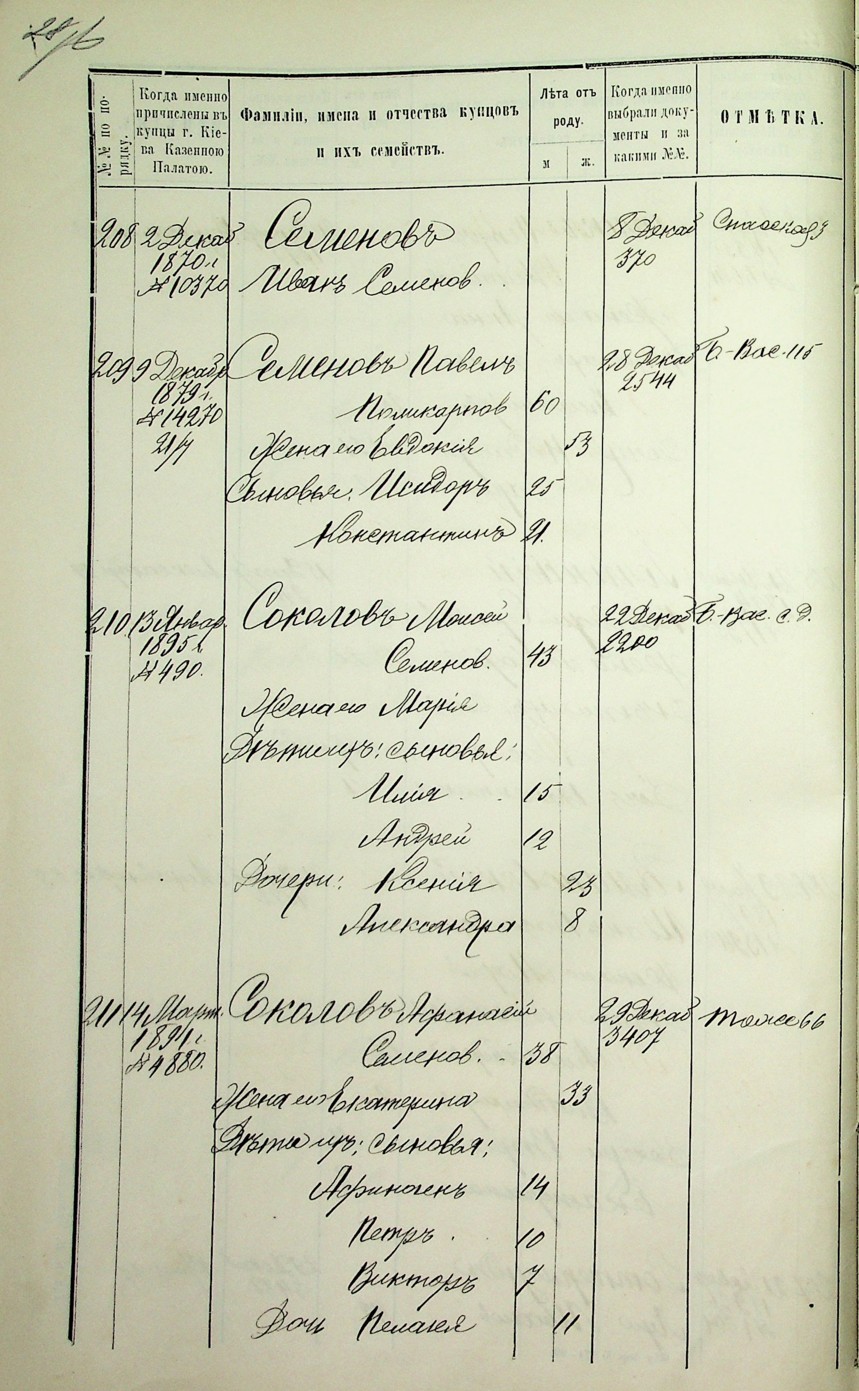 №№ по по-
рядку.
Когда именно
причислены въ
купцы г. Кіе-
ва Казенною
Палатою.
Фамиліи, имена и отчества купцовъ
и ихъ семействъ.
Лѣта отъ
роду.
м
ж.
Когда именно
выбрали доку-
менты и за
какими №№.
ОТМѢТКА.
208 2 Декаб Семеновъ 8 Декаб Спасская 3
1870 г. 370
№ 10370 Иванъ Семенов.
209 9 Декабр Семеновъ Павелъ 28 Декаб Б.-Вас. 115
1879 г. 2544
№ 14270 Поликарпов 60
21/4 Жена его Евдокія 53
Сыновья: Исидоръ 25
Константинъ 21.
210 13 Январ. Соколовъ Моисей 22 Декаб Б.-Вас. с. д.
1895 г. 2200
№ 490. Семенов. 43
Жена его Марія
Дѣти ихъ: сыновья:
Илія 15
Андрей 12
Дочери: Ксенія 23
Александра 8
211 14 Март. Соколовъ Афанасій 29 Декаб тоже 66
1891 г. 3407
№ 4880. Семенов. 38
Жена его Екатерина 33
Дѣти ихъ: сыновья:
Афиногенъ 14
Петръ. 10
Викторъ 7
Дочь Пелагея 11